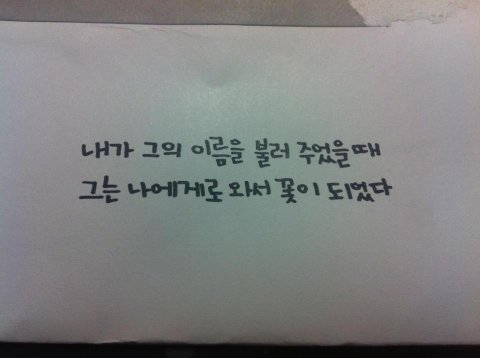 내가 그의 이름을 불러 주었을때
그는 나에게로 와서 꽃이 되었다